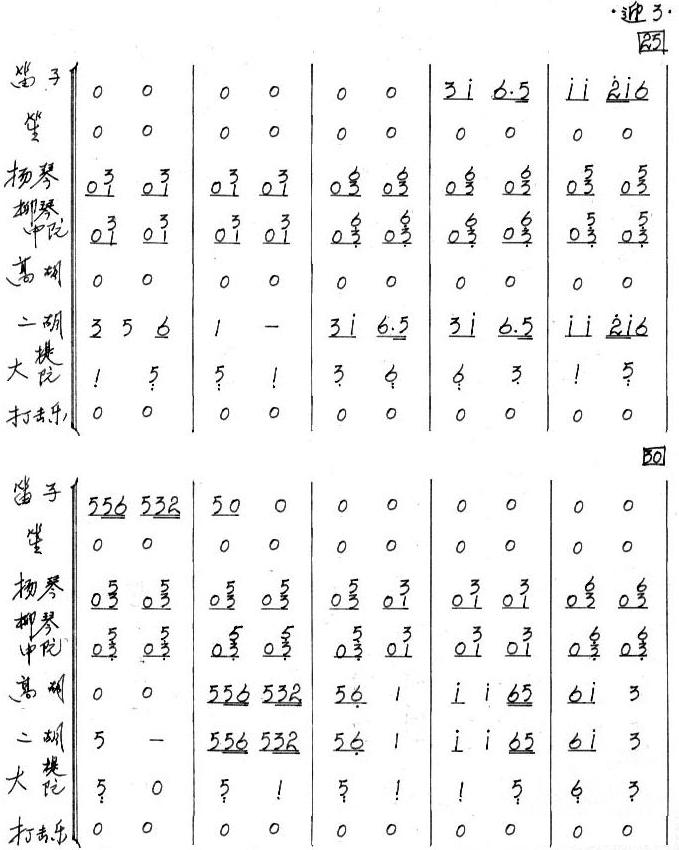 ·迎 3·
25
笛子 0 0 | 0 0 | 0 0 | 3i 6.5 | ii 2i6
笙 0 0 | 0 0 | 0 0 | 0 0 | 0 0
扬琴 0 3/1 0 3/1 | 0 3/1 0 3/1 | 0 6/3 0 6/3 | 0 6/3 0 6/3 | 0 5/3 0 5/3
柳琴 中阮 0 3/1 0 3/1 | 0 3/1 0 3/1 | 0 6/3 0 6/3 | 0 6/3 0 6/3 | 0 5/3 0 5/3
高胡 0 0 | 0 0 | 0 0 | 0 0 | 0 0
二胡 3 5 6 | 1 – | 3i 6.5 | 3i 6.5 | ii 2i6
大提 阮 1 5 | 5 1 | 3 6 | 6 3 | 1 5
打击乐 0 0 | 0 0 | 0 0 | 0 0 | 0 0
30
笛子 556 532 | 50 0 | 0 0 | 0 0 | 0 0
笙 0 0 | 0 0 | 0 0 | 0 0 | 0 0
扬琴 0 5/3 0 5/3 | 0 5/3 0 5/3 | 0 5/3 0 3/1 | 0 3/1 0 3/1 | 0 6/3 0 6/3
柳琴 中阮 0 5/3 0 5/3 | 0 5/3 0 5/3 | 0 5/3 0 3/1 | 0 3/1 0 3/1 | 0 6/3 0 6/3
高胡 0 0 | 556 532 | 56 1 | i i 65 | 6i 3
二胡 5 – | 556 532 | 56 1 | i i 65 | 6i 3
大提 阮 5 0 | 5 1 | 5 1 | 1 5 | 6 3
打击乐 0 0 | 0 0 | 0 0 | 0 0 | 0 0